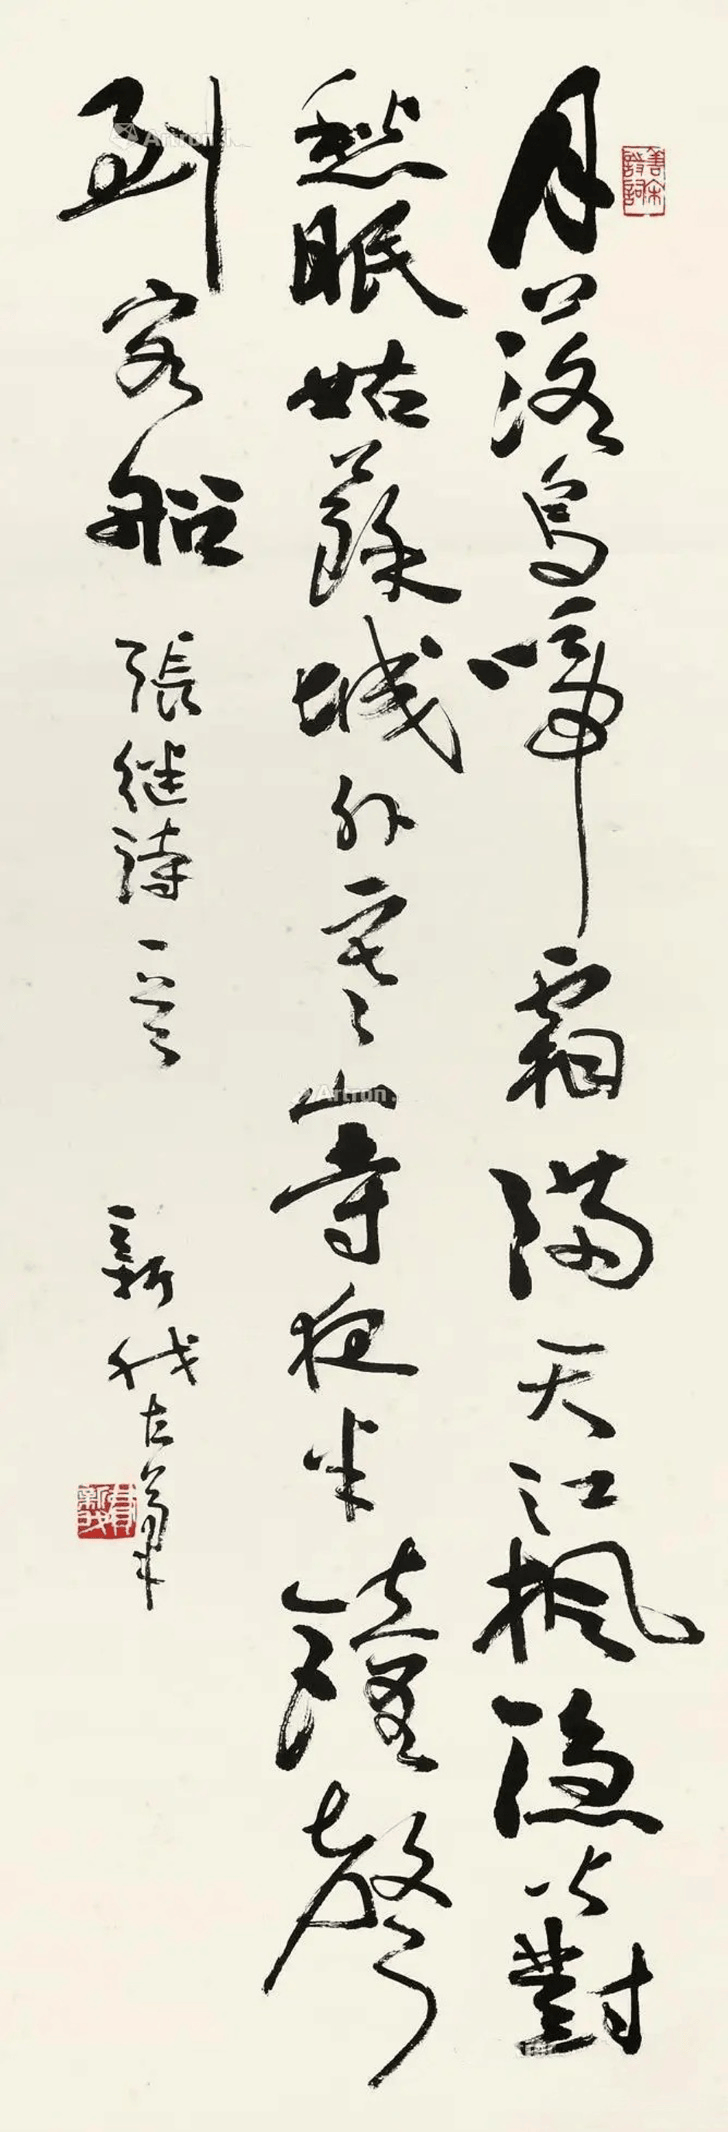 月落烏啼霜滿天江楓漁火對
愁眠姑蘇城外寒山寺夜半鐘聲
到客船 張継詩一首 新我左筆
Artron
Artron
費新我